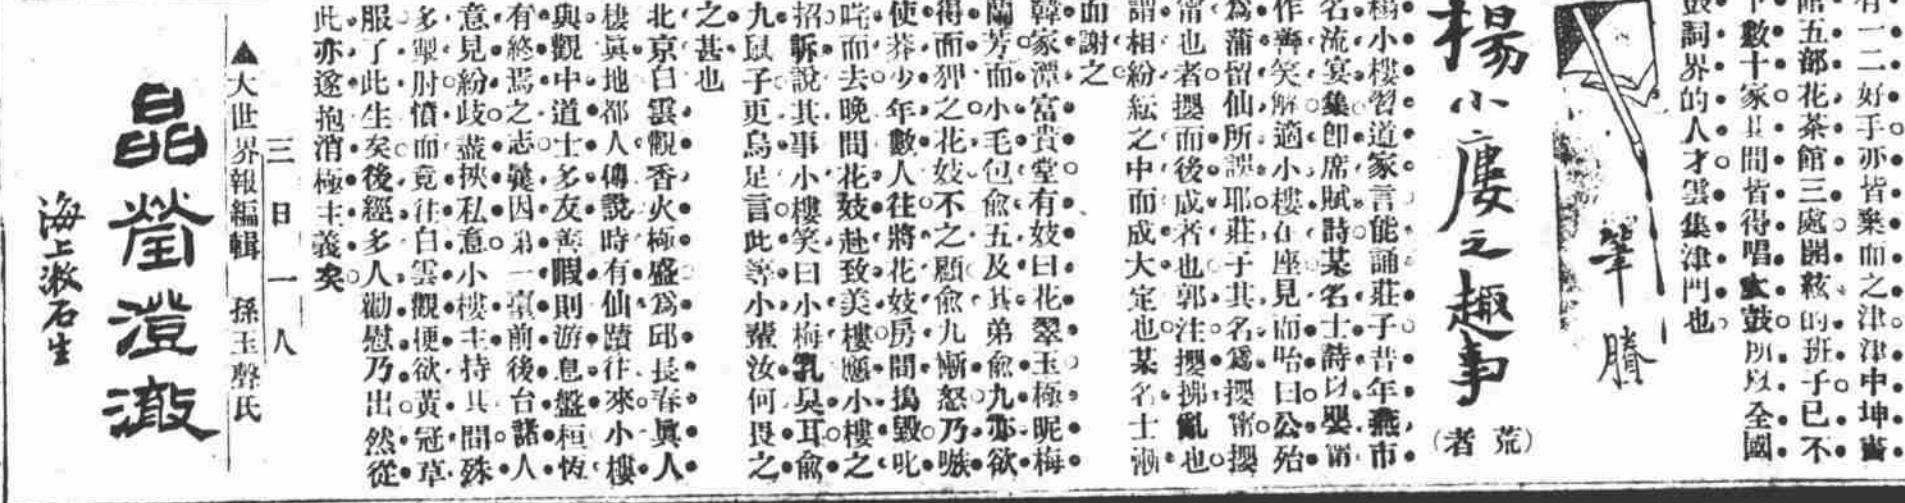 有一二好手亦皆棄而之津津中坤書
館五部花茶館三處開鼓的班子已不
下數十家其間皆得唱大鼓所以全國
鼓詞界的人才雲集津門也
筆賸
楊小廔之趣事
（荒者）
楊小樓習道家言能誦莊子昔年燕市
名流宴集卽席賦詩某名士詩以嬰甯
作齊笑解適小樓在座見而咍曰公殆
爲蒲留仙所誤耶莊子其名爲攖甯攖
甯也者攖而後成者也郭注攖拂亂也
謂相紛紜之中而成大定也某名士漸
而謝之
韓家潭富貴堂有妓曰花翠玉極昵梅
蘭芳而小毛包兪五及其弟兪九亦欲
得而狎之花妓不之顧兪九慚怒乃嗾
使莽少年數人往將花妓房間搗毀叱
咤而去晚間花妓赴致美樓應小樓之
招訴說其事小樓笑曰小梅乳臭耳兪
九鼠子更烏足言此等小輩汝何畏之
之甚也
北京白雲觀香火極盛爲邱長春眞人
棲眞地都人傳說時有仙蹟往來小樓
與觀中道士多友善暇則游息盤桓恆
有終焉之志嶷因弟一臺前後台諸人
意見紛歧盡挾私意小樓主持其間殊
多掣肘憤而竟往白雲觀梗欲黃冠草
服了此生矣後經多人勸慰乃出然從
此亦遂抱消極主義矣
三日一人
▲大世界報編輯 孫玉聲氏
晶瑩澄澈
海上漱石生